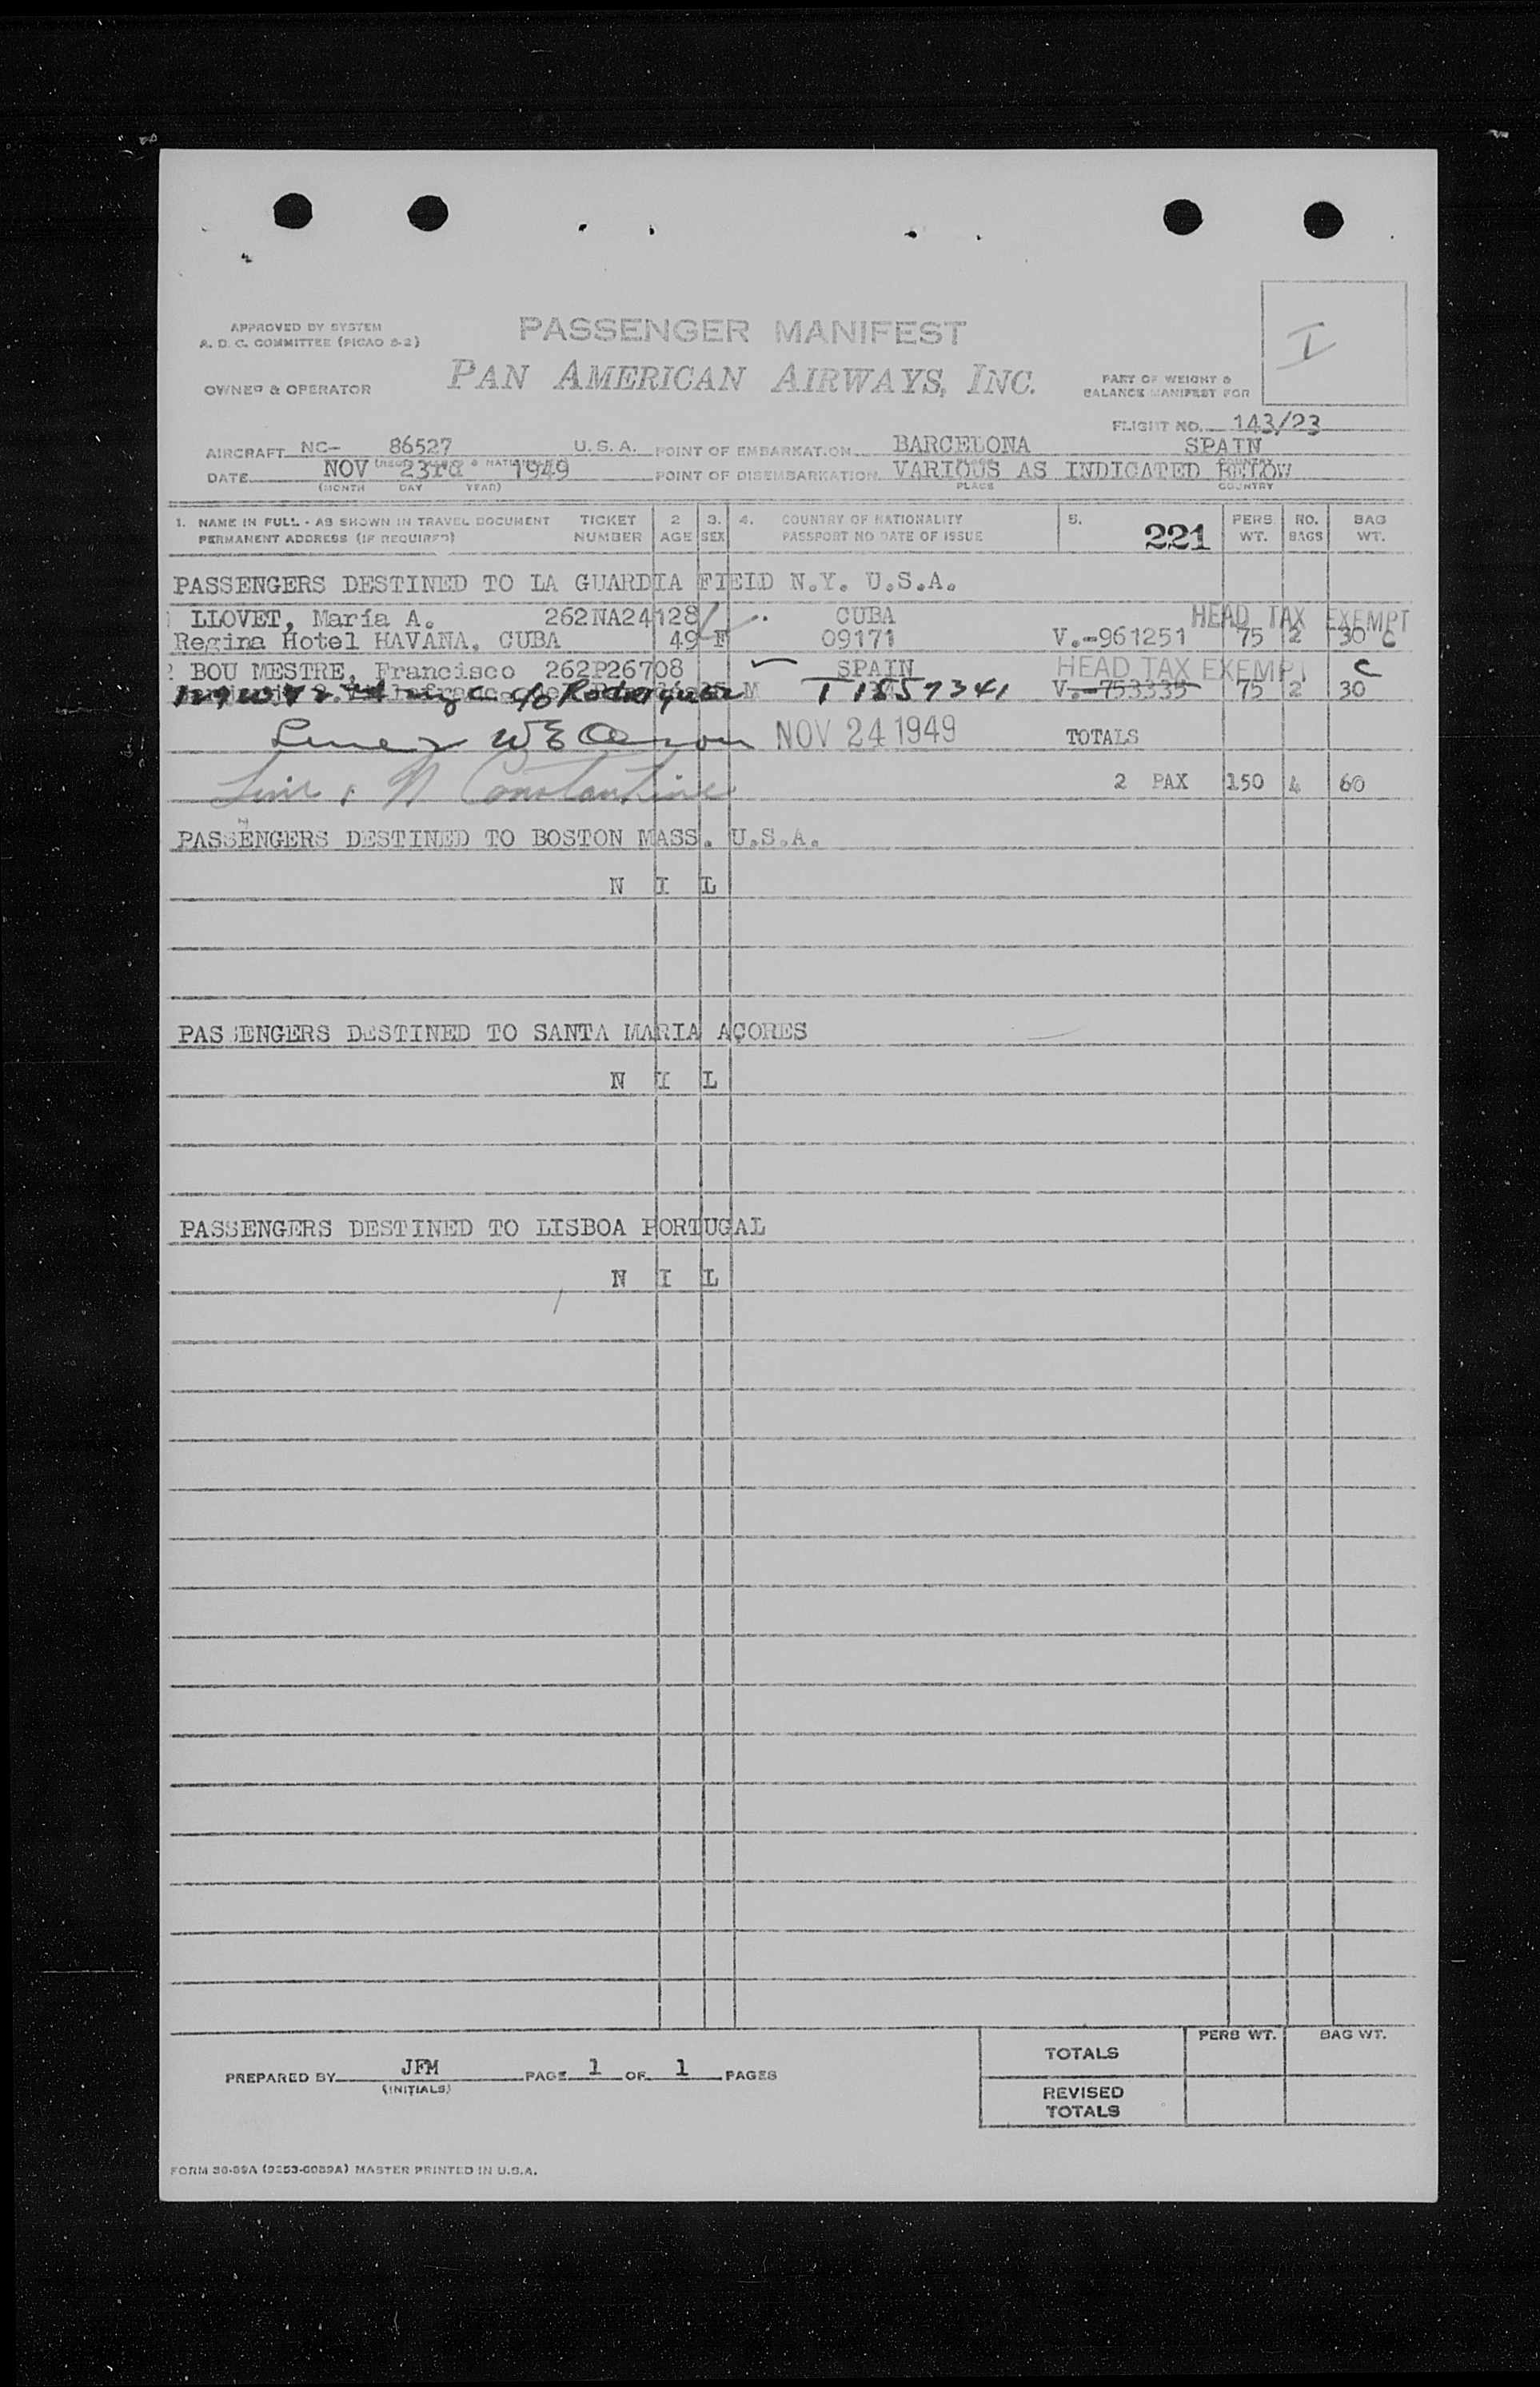 APPROVED BY SYSTEM
A. D. C. COMMITTEE (PICAO 5-2)
PASSENGER MANIFEST
I
OWNER & OPERATOR
PAN AMERICAN AIRWAYS, INC.
PART OF WEIGHT &
BALANCE MANIFEST FOR
FLIGHT NO. 143/23
AIRCRAFT NC- 86527 U.S.A. POINT OF EMBARKATION BARCELONA SPAIN
DATE NOV 23rd 1949 POINT OF DISEMBARKATION VARIOUS AS INDICATED BELOW
(MONTH DAY YEAR) PLACE COUNTRY
1. NAME IN FULL - AS SHOWN IN TRAVEL DOCUMENT TICKET 2 3. 4. COUNTRY OF NATIONALITY 5. 221 PERS NO. BAG
PERMANENT ADDRESS (IF REQUIRED) NUMBER AGE SEX PASSPORT NO DATE OF ISSUE WT. BAGS WT.
PASSENGERS DESTINED TO LA GUARDIA FIELD N.Y. U.S.A.
1 LLOVET, María A. 262NA24128 CUBA HEAD TAX EXEMPT
Regina Hotel HAVANA, CUBA 49 F 09171 V.-961251 75 2 30 C
2 BOU MESTRE, Francisco 262P26708 SPAIN HEAD TAX EXEMPT C
c/o Rodriguez M T1857341 V.-753335 75 2 30
NOV 24 1949 TOTALS
Constantine 2 PAX 150 4 60
PASSENGERS DESTINED TO BOSTON MASS. U.S.A.
N I L
PASSENGERS DESTINED TO SANTA MARIA AÇORES
N I L
PASSENGERS DESTINED TO LISBOA PORTUGAL
N I L
PERS WT. BAG WT.
TOTALS
PREPARED BY JFM PAGE 1 OF 1 PAGES
(INITIALS)
REVISED
TOTALS
FORM 30-89A (9253-6089A) MASTER PRINTED IN U.S.A.